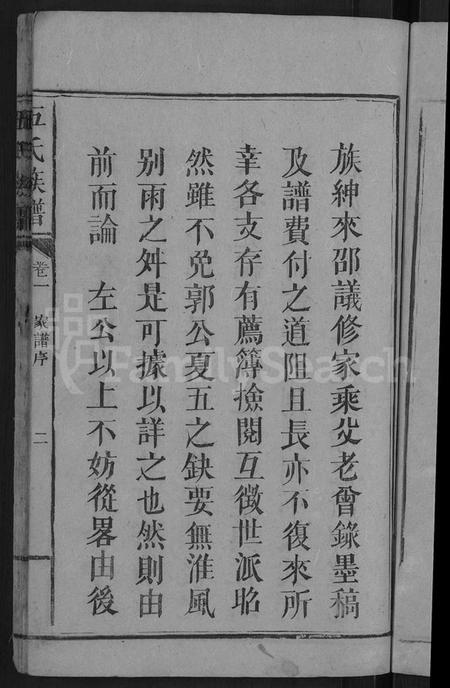 族紳來邵議修家乘父老曾錄墨稿
及譜費付之道阻且長亦不復來所
幸各支存有薦簿撿閱互徵世派昭
然雖不免郭公夏五之缺要無淮風
别雨之舛是可據以詳之也然則由
前而論 左公以上不妨從畧由後
氏族譜
卷一 家譜序 二
FamilySearch